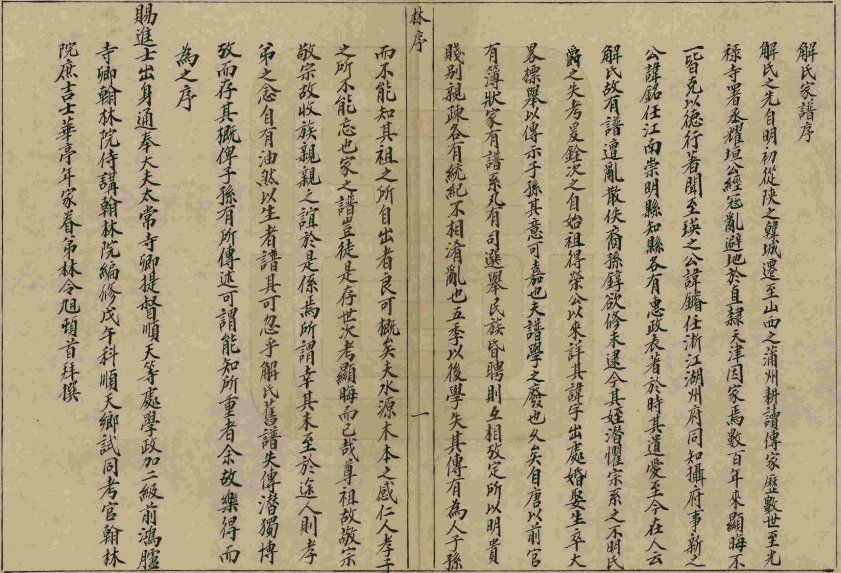 解氏家譜序
解氏之先自明初從陝之韓城遷至山西之蒲州耕讀傳家歷數世至光
祿寺署丞耀垣公經寇亂避地於直隸天津因家焉數百年來顯晦不
一皆克以德行著聞至瑛之公諱鏞任浙江湖州府同知攝府事新之
公諱銘任江南崇明縣知縣各有惠政表著於時其道愛至今在人云
解氏故有譜遭亂散佚裔孫錞欲修未逮今其姪潛懼宗系之不明氏
爵之失考爰銓次之自始祖得榮公以來詳其諱字出處婚娶生卒大
畧標舉以傳示子孫其意可嘉也夫譜學之廢也久矣自唐以前官
有簿狀家有譜系凡有司選舉民族昏聘則互相攷定所以明貴
賤別親疎各有統紀不相淆亂也五季以後學失其傳有為人子孫
林序
一
而不能知其祖之所自出者良可慨矣夫水源木本之感仁人孝子
之所不能忘也家之譜豈徒是存世次考顯晦而已哉尊祖故敬宗
敬宗故收族親親之誼於是係焉所謂幸其未至於途人則孝
弟之念自有油然以生者譜其可忽乎解氏舊譜失傳潛獨博
攷而存其概俾子孫有所傳述可謂能知所重者余故樂得而
為之序
賜進士出身通奉大夫太常寺卿提督順天等處學政加二級前鴻臚
寺卿翰林院侍講翰林院編修戊午科順天鄉試同考官翰林
院庶吉士華亭年家眷弟林令旭頓首拜撰